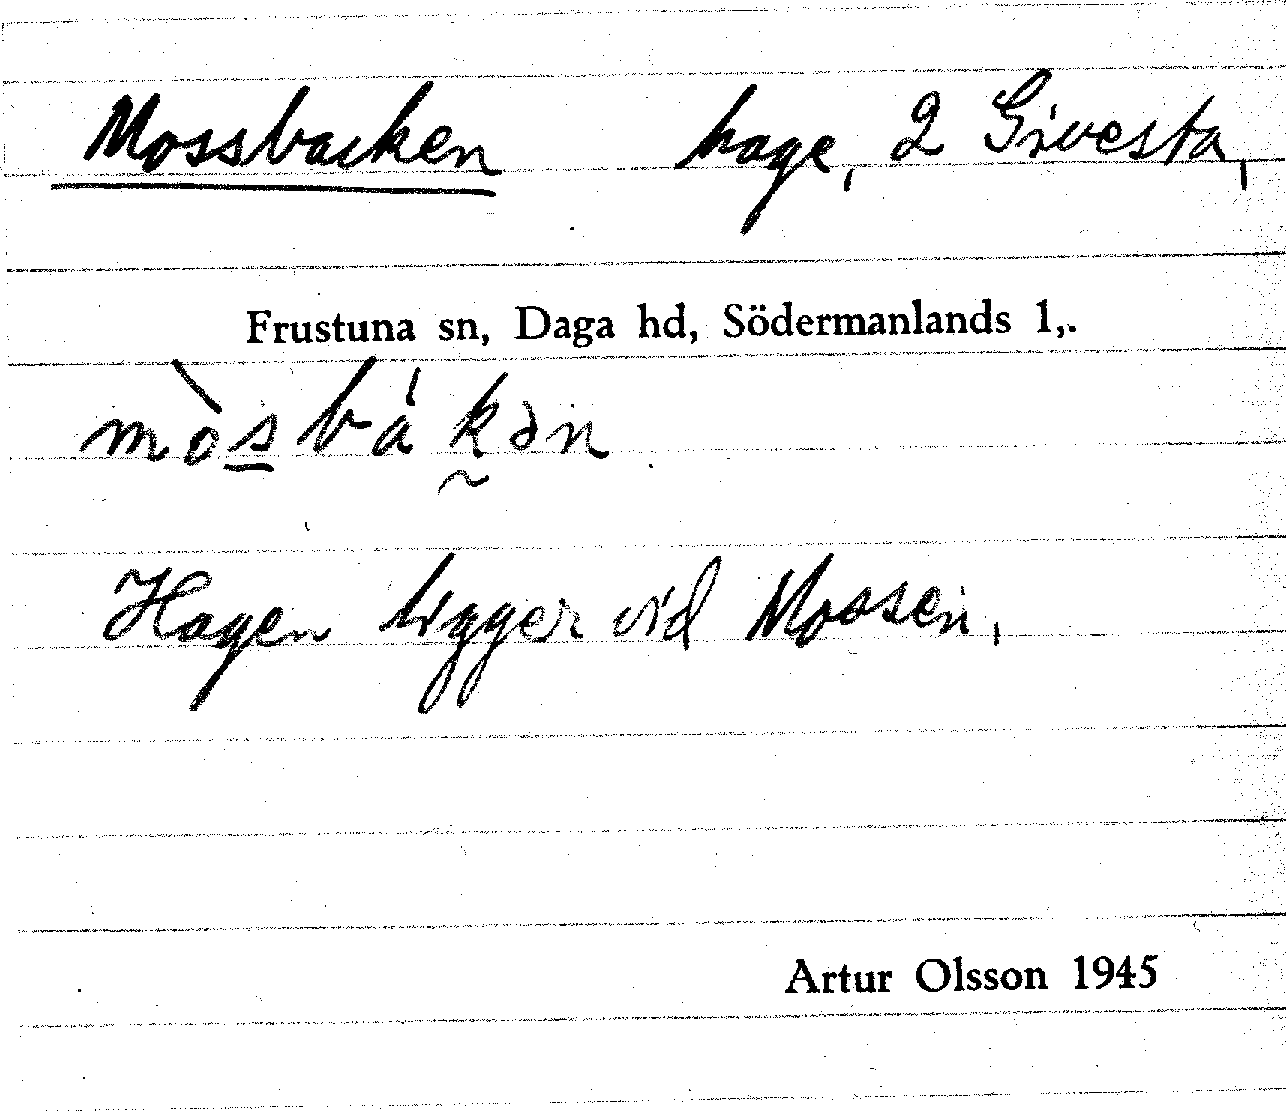 Mossbacken hage, 2 Sivesta,
Frustuna sn, Daga hd, Södermanlands l,.
mòsbákən
Hagen ligger vid Mossen,
Artur Olsson 1945